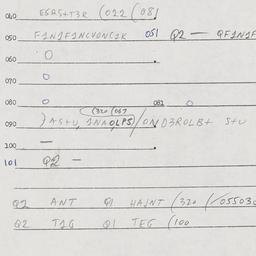 040 EGRS+T3R (022 (081
050 F1N1F1NCVONC1K 051 Q2 — QF1N1F
060 O
070 O
080 O 081 O
(320 (067
090 ) A S+U, 1NAOLPS/ON D3ROLB+ S+U
100 —
101 Q2 —
Q2 ANT Q1 HA1NT (320 (/05503
Q2 T1G Q1 TEG (100